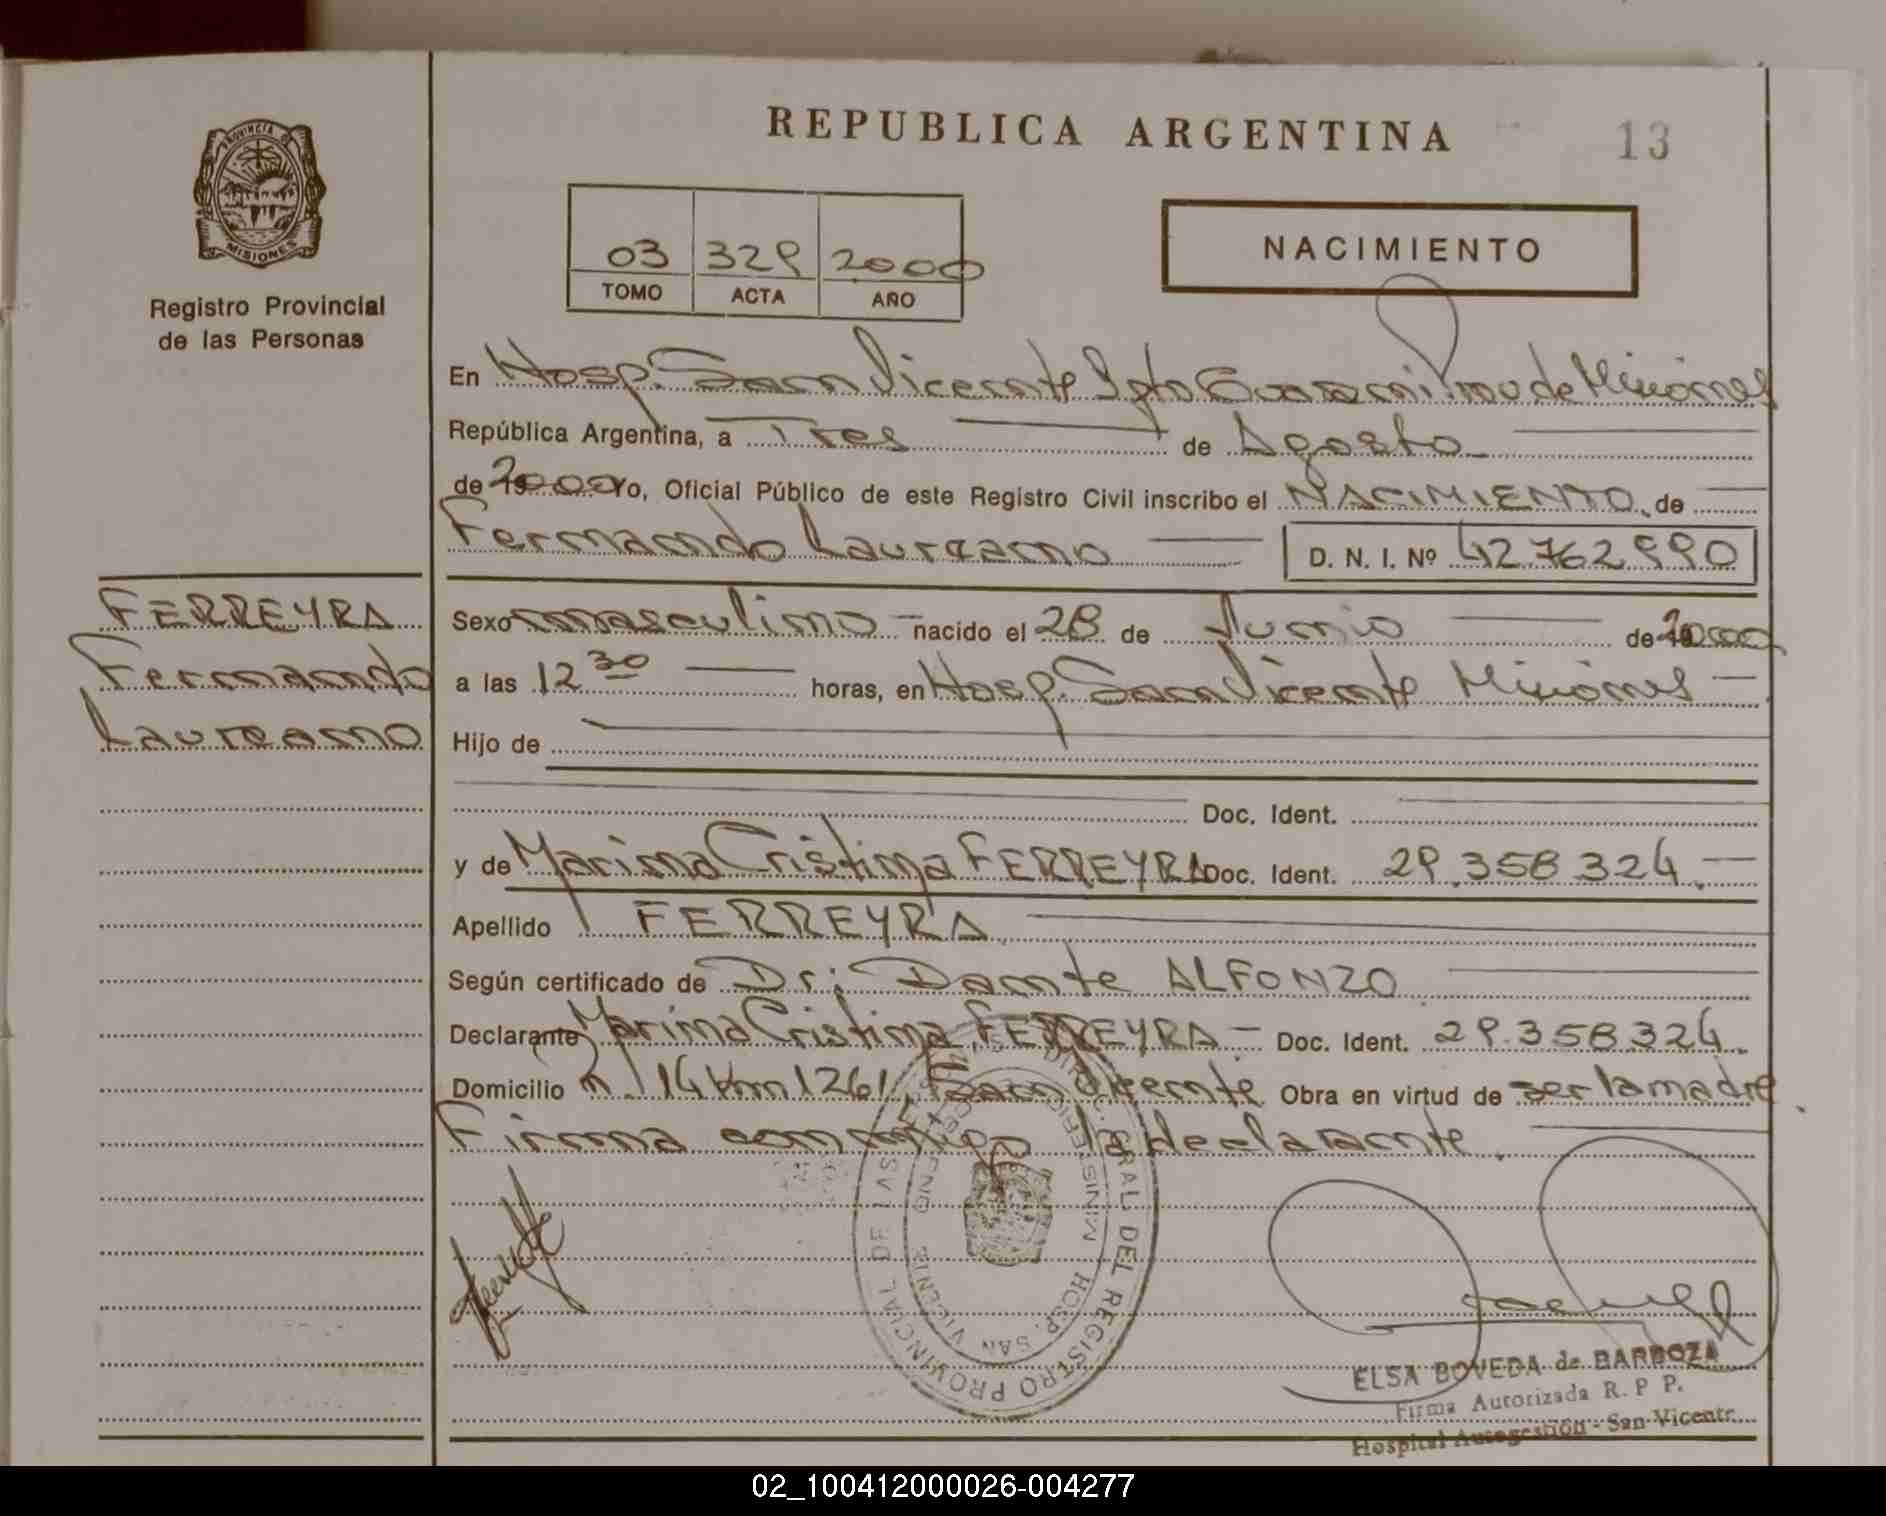 REPUBLICA ARGENTINA
13
PROVINCIA DE
MISIONES
Registro Provincial
de las Personas
03 329 2000
TOMO ACTA AÑO
NACIMIENTO
En Hosp. San Vicente Dpto Guaraní Prov de Misiones
República Argentina, a Tres de Agosto
de 2000 Yo, Oficial Público de este Registro Civil inscribo el NACIMIENTO de
Fernando Laureano D. N. I. Nº 42.762.990
FERREYRA
Fernando
Laureano
Sexo masculino nacido el 28 de Junio de 2000
a las 12 30 horas, en Hosp. San Vicente Misiones
Hijo de
Doc. Ident.
y de Marina Cristina FERREYRA Doc. Ident. 29.358.324.
Apellido FERREYRA
Según certificado de Dr: Dante ALFONZO
Declarante Marina Cristina FERREYRA Doc. Ident. 29.358.324.
Domicilio R. 14 Km 1261 San Vicente Obra en virtud de ser la madre.
Firma conmigo la declarante.
DIRECC. GRAL. DEL REGISTRO PROVINCIAL DE LAS PERSONAS
HOSP. SAN VICENTE
ELSA BOVEDA de BARBOZA
Firma Autorizada R. P P.
Hospital Autogestión - San Vicente
02_100412000026-004277